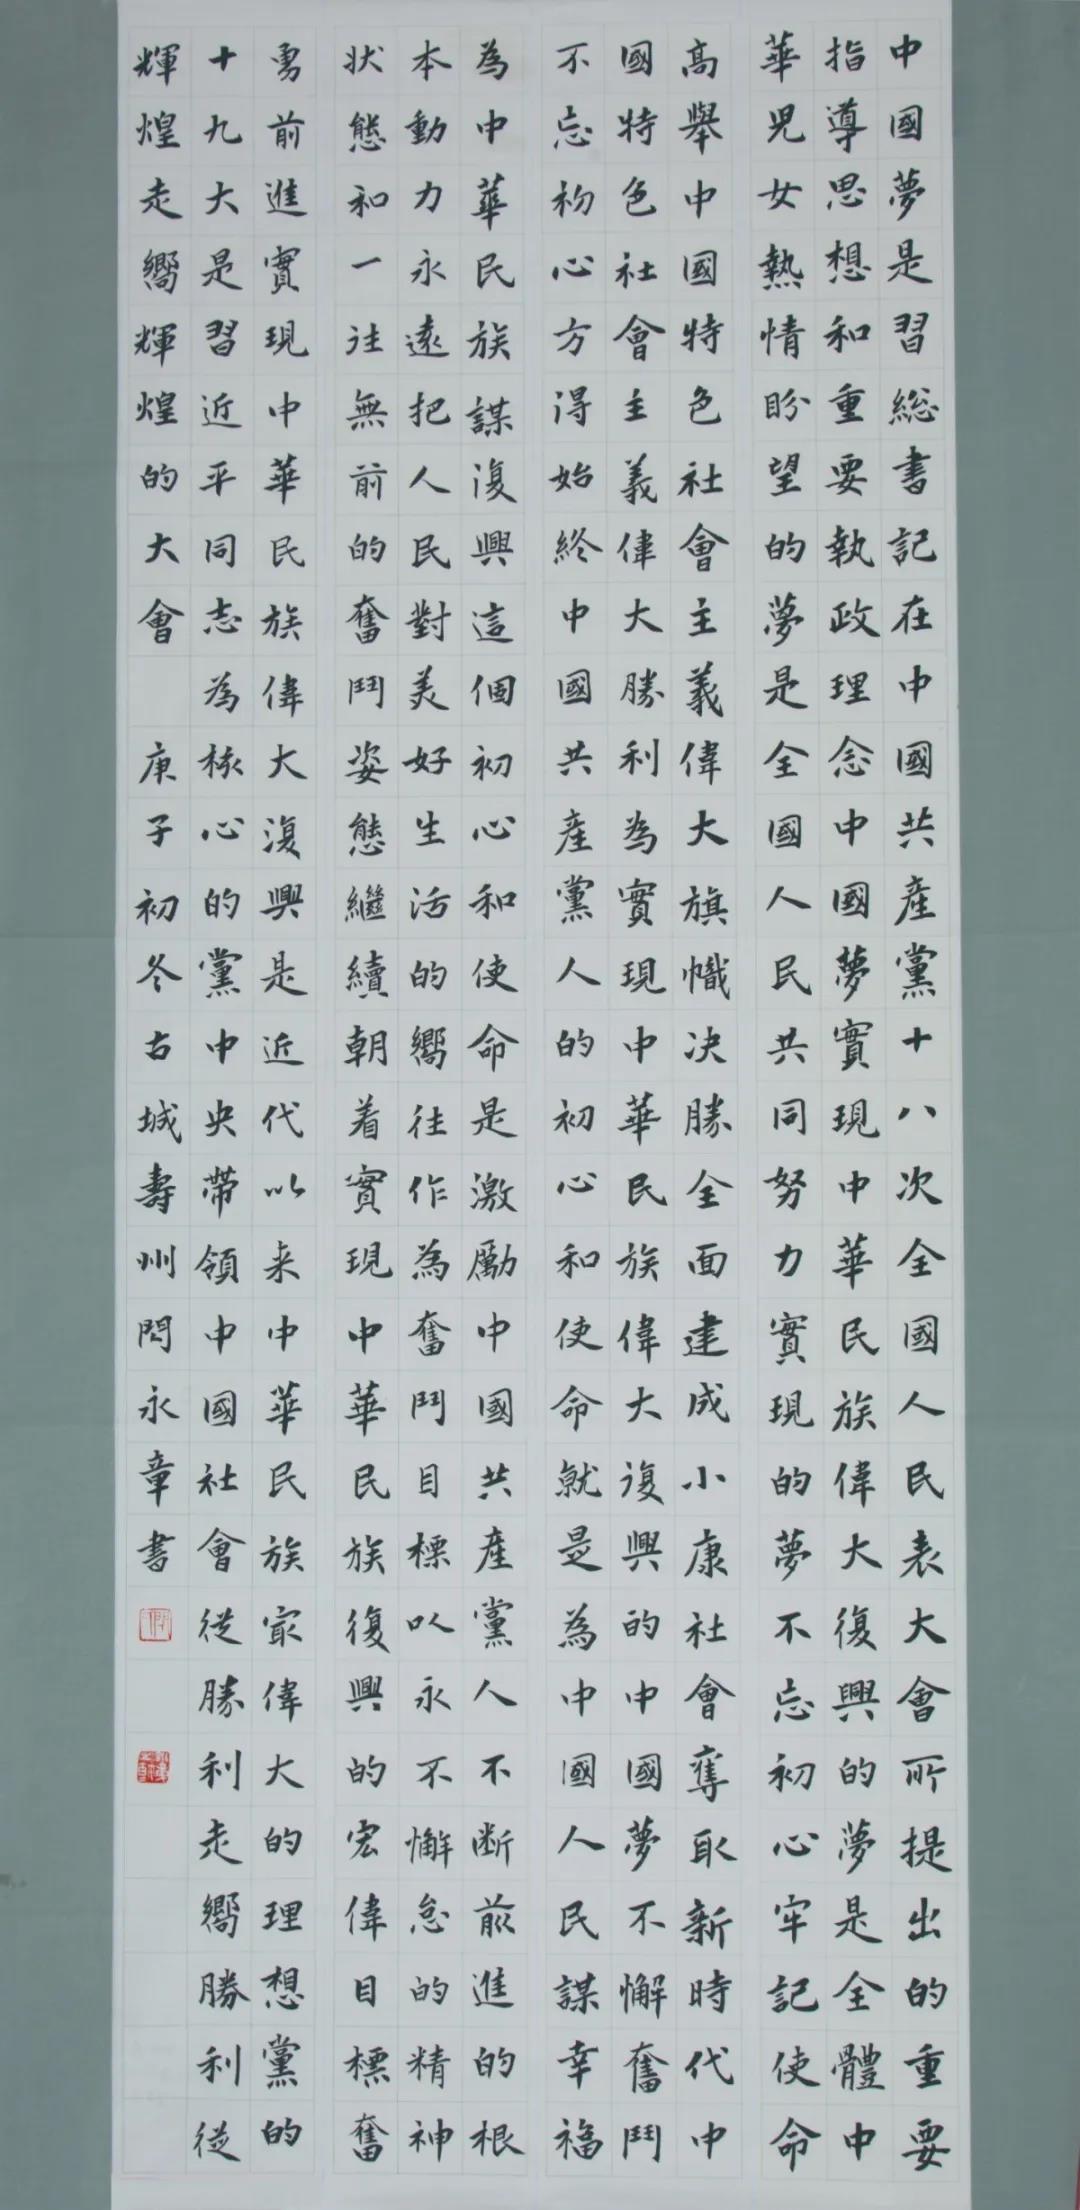 中國夢是習総書記在中國共產黨十八次全國人民表大會所提出的重要
指導思想和重要執政理念中國夢實現中華民族偉大復興的夢是全體中
華兒女熱情盼望的夢是全國人民共同努力實現的夢不忘初心牢記使命
高舉中國特色社會主義偉大旗幟決勝全面建成小康社會奪取新時代中
國特色社會主義偉大勝利為實現中華民族偉大復興的中國夢不懈奮鬥
不忘初心方得始終中國共產黨人的初心和使命就是為中國人民謀幸福
為中華民族謀復興這個初心和使命是激勵中國共產黨人不断前進的根
本動力永遠把人民對美好生活的嚮往作為奮鬥目標以永不懈怠的精神
狀態和一往無前的奮鬥姿態繼續朝着實現中華民族復興的宏偉目標奮
勇前進實現中華民族偉大復興是近代以来中華民族最偉大的理想黨的
十九大是習近平同志為核心的黨中央帶領中國社會從勝利走嚮勝利從
輝煌走嚮輝煌的大會 庚子初冬古城壽州閃永章書